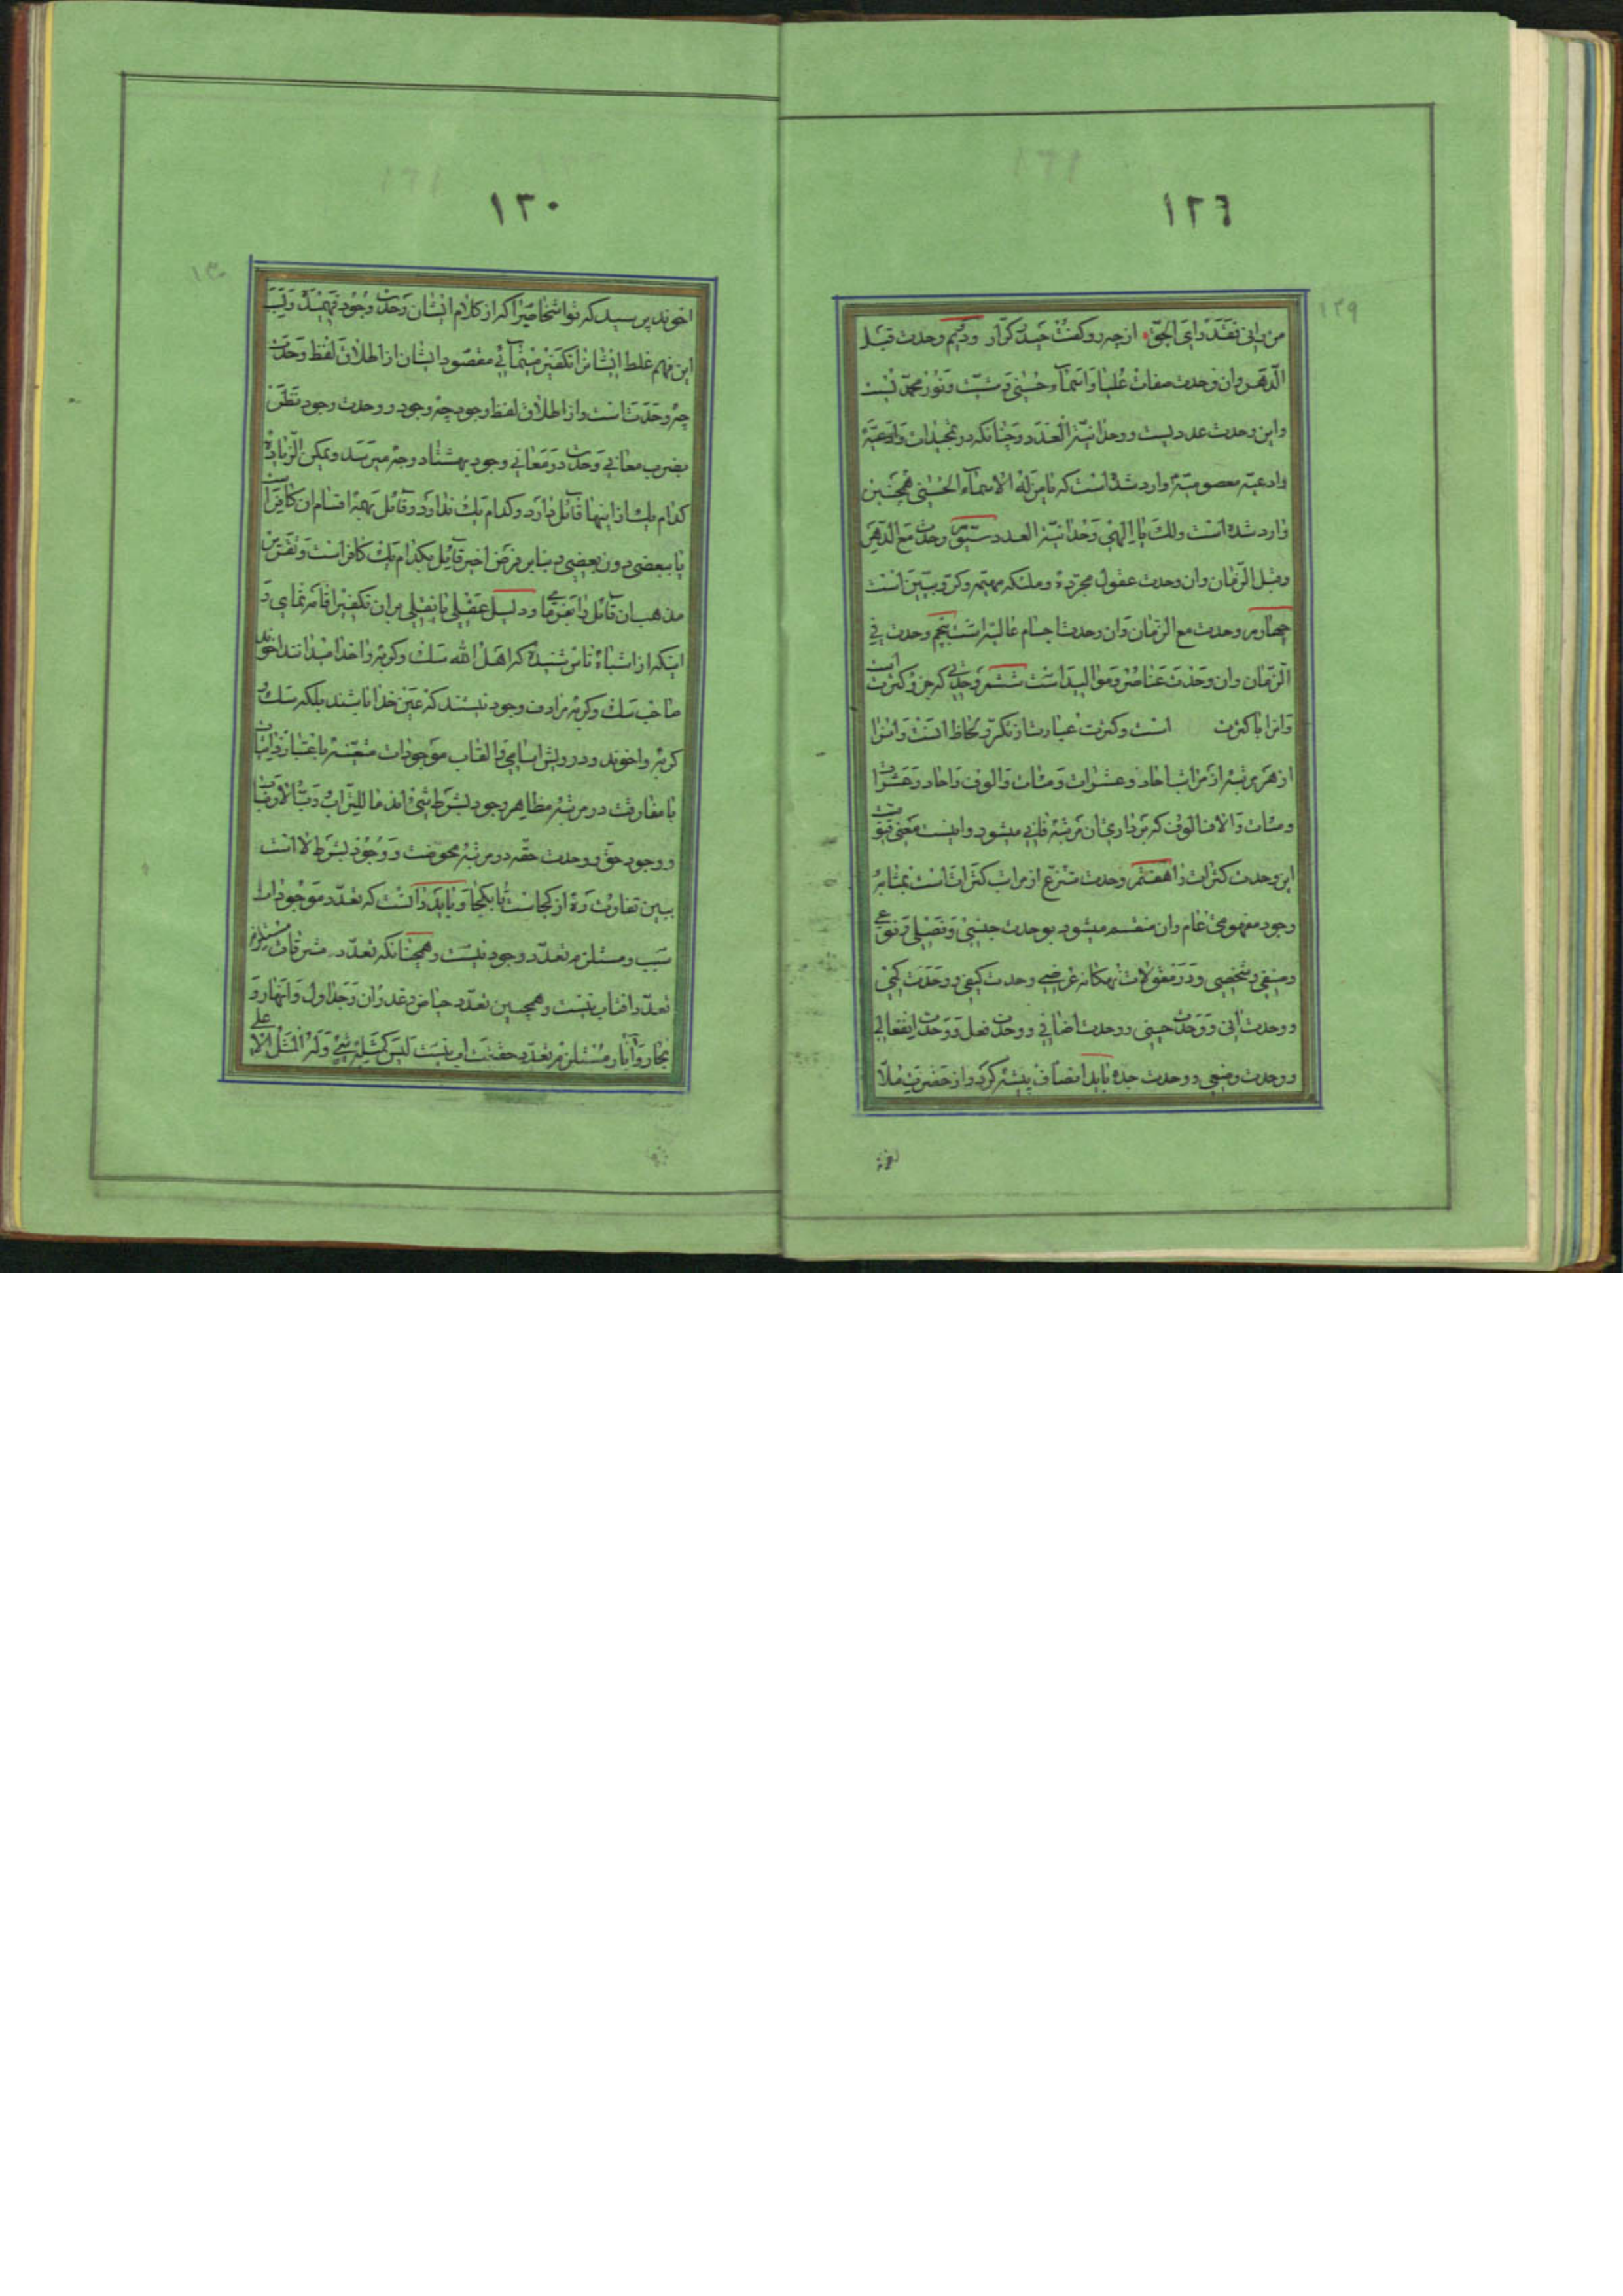 ١٢٦
١٢٩
من رانی فقد رای الحق از چه رو کفت حیدر کرّار ودیم وحدت قبل
الدّهر وان وحدت صفات علیا واسماء حسنی ومشیّت ونور محمّد نیست
واین وحدت عددیست ووحدانیّة العدد وچنانکه در تمجیدات وادعیّة
وادعیّه معصومیّه وارد شده است که یا من له الاسماء الحسنی همچنین
وارد شده است ولک یا الهی وحدانیّة العدد سیّوم وحدت مع الدّهر
وقبل الزّمان وان وحدت عقول مجرّده وملئکه مهیّمه وکرّوبییّن است
چهارم وحدت مع الزمان وان وحدت اجسام عالیه است پنجم وحدت فی
الزّمان وان وحدت عناصر وموالید است ششم وحدتی که جزو کثرت است
وانرا با کثرت است وکثرت عبارت از تکرّر لحاظ است وانرا
از هر مرتبه از مراتب احاد وعشرات ومئات والوف واحاد وعشرات
ومئات والاف الوف که برداری ان مرتبه فانی میشود واینست معنی
این وحدت کثرات را هفتم وحدت منتزع از مراتب کثرات است بمثابه
وجود مفهومی عام وان منقسم میشود بوحدت جنسی وفصلی ونوعی
وصنفی وشخصی ودر مقولات نهکانه عرضیه وحدت کیفی ووحدت کمّی
ووحدت اینی ووحدت حینی ووحدت اضافی ووحدت فعل ووحدت انفعالی
ووحدت وضعی ووحدت جده باید انصاف پیشه کرد واز حضرت ملّا
١٣٠
١٣٠
اخوند پرسید که تو اشخاصیرا که از کلام ایشان وحدت وجود فهمیدۀ وبسبب
این فهم غلط ایشانرا تکفیر مینمائی مقصود ایشان از اطلاق لفظ وحدت
چه وحدت است واز اطلاق لفظ وجود چه وجود ووحدت وجود
بضرب معانی وحدت در معانی وجود بهشتاد وجه میرسد ویمکن الزیادة
کدام یک از اینها قائل دارد وکدام یک ندارد وقائل بهمه اقسام ان کافر است
یا ببعضی دون بعضی وبنابر فرض اخیر قایل بکدام یک کافر است
مذهب ان قائل را بفرما ودلیل عقلی یا نقلی بر ان تکفیر اقامه نمای و
اینکه از اشباه ناس شنیدۀ که اهل الله سک وکربه را خدا میدانند اخوند
صاحب سک وکربه مرادف وجود نیستند که عین خدا باشند بلکه سک و
کربه واخوند ودرویش اسامی والقاب موجودات متعیّنه باعتبار
با مفارقت در مرتبه مظاهر وجود بشرط شئ اند ما للتراب وربّ الارباب
ووجود حقّ ووحدت حقّه در مرتبه محوضت ووجود بشرط لا است
ببین تفاوت ره از کجاست تا بکجا وباید دانست که تعدّد موجودات
سبب ومستلزم تعدّد وجود نیست وهمچنانکه تعدّد مشرقات مستلزم
تعدّد افتاب نیست وهمچنین تعدّد حیاض وغدران وجداول وانهار و
بحار وآبار مستلزم تعدّد حقیقت اب نیست لیس کمثله شئ وله المثل الاعلی